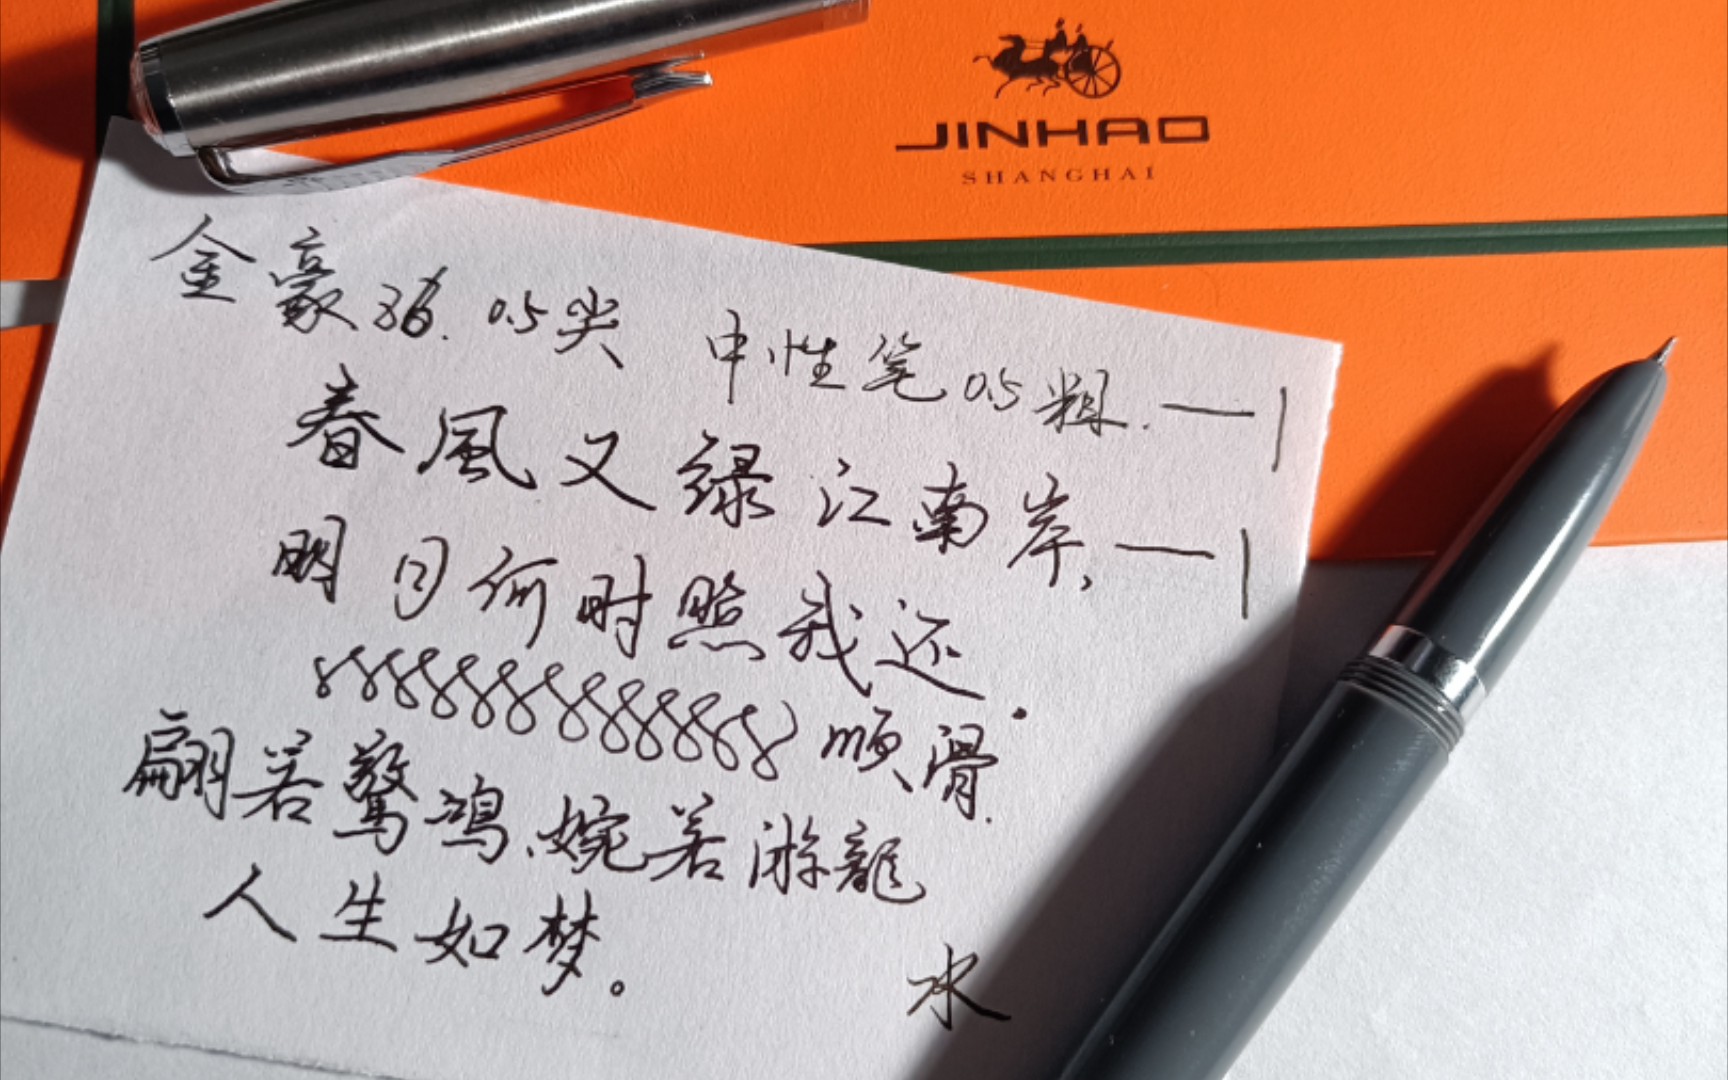 JINHAO
SHANGHAI
金豪86. 0.5尖 中性笔0.5粗.一丨
春風又绿江南岸,一丨
明月何时照我还.
顺滑.
翩若驚鴻、婉若游龍
人生如梦。
水